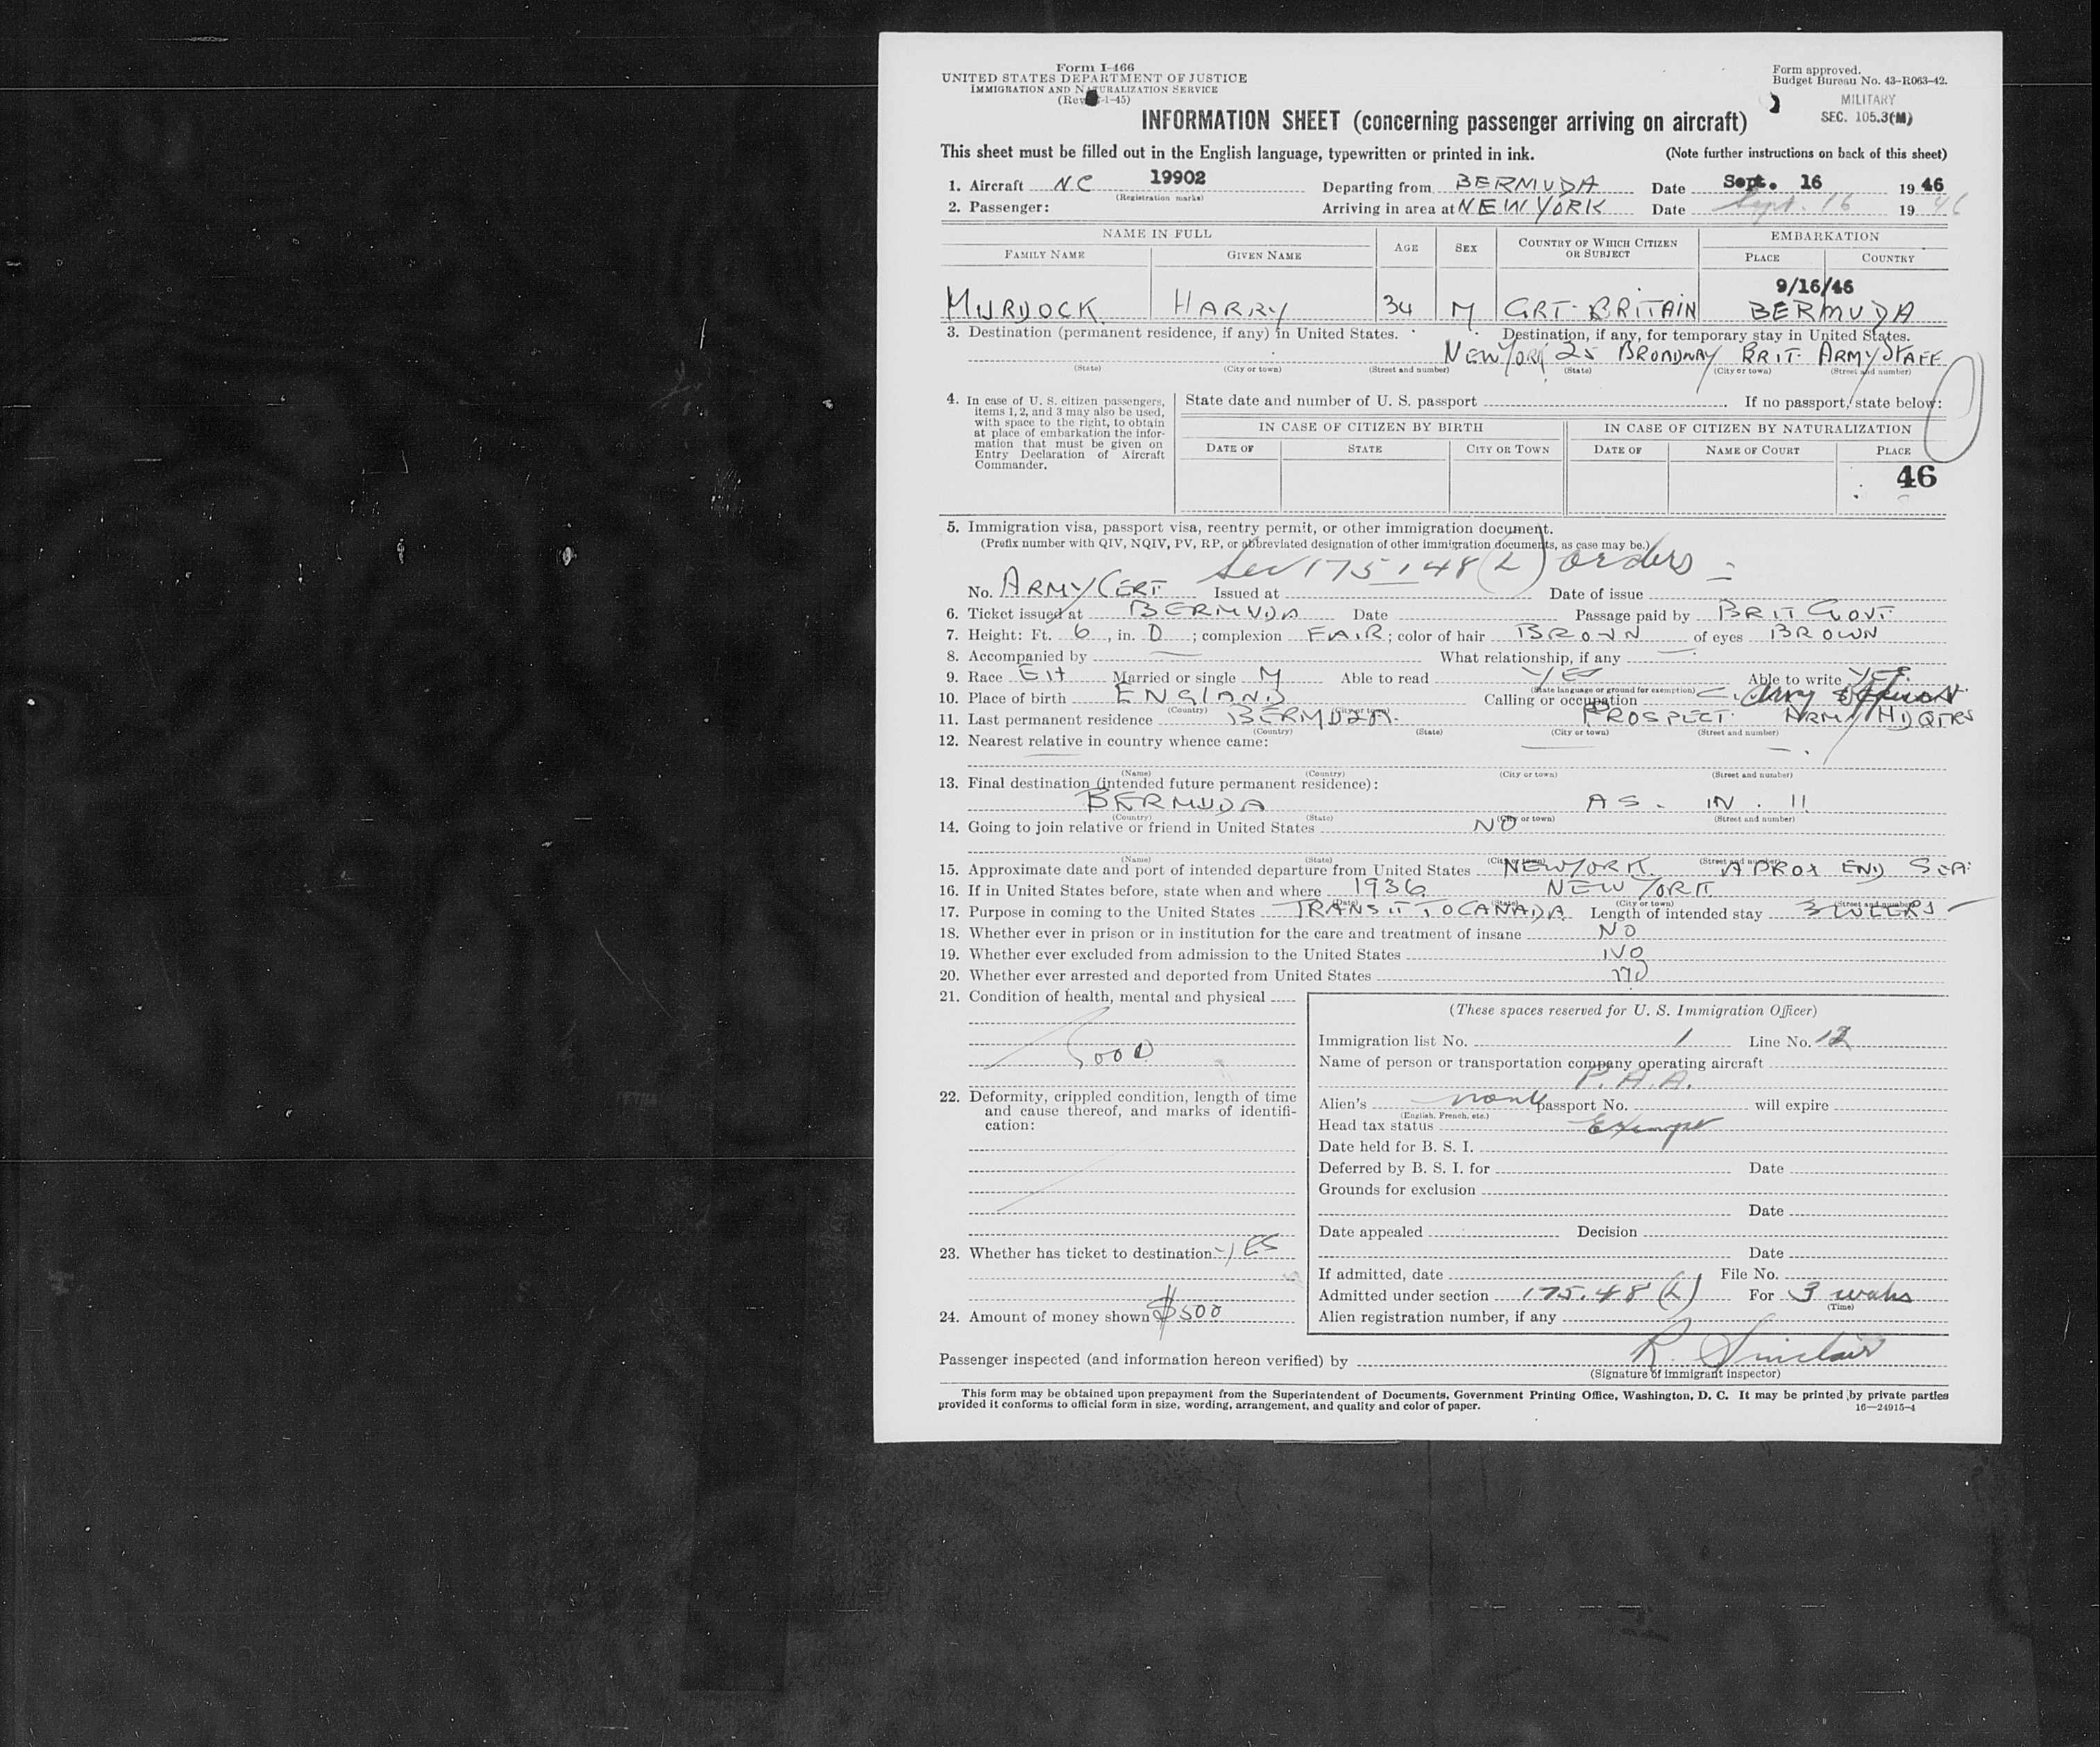 Form I-466
UNITED STATES DEPARTMENT OF JUSTICE
IMMIGRATION AND NATURALIZATION SERVICE
(Rev. -1-45)
Form approved.
Budget Bureau No. 43-R063-42.
MILITARY
SEC. 105.3(M)
INFORMATION SHEET (concerning passenger arriving on aircraft)
This sheet must be filled out in the English language, typewritten or printed in ink. (Note further instructions on back of this sheet)
1. Aircraft NC 19902 Departing from BERMUDA Date Sept. 16 1946
(Registration marks)
2. Passenger: Arriving in area at NEW YORK Date Sept. 16 1946
NAME IN FULL AGE SEX COUNTRY OF WHICH CITIZEN OR SUBJECT EMBARKATION
FAMILY NAME GIVEN NAME PLACE COUNTRY
9/16/46
MURDOCK HARRY 34 M GRT. BRITAIN BERMUDA
3. Destination (permanent residence, if any) in United States. Destination, if any, for temporary stay in United States.
NEW YORK 25 BROADWAY BRIT. ARMY STAFF
(State) (City or town) (Street and number) (State) (City or town) (Street and number)
4. In case of U. S. citizen passengers, items 1, 2, and 3 may also be used, with space to the right, to obtain at place of embarkation the information that must be given on Entry Declaration of Aircraft Commander.
State date and number of U. S. passport If no passport, state below:
IN CASE OF CITIZEN BY BIRTH IN CASE OF CITIZEN BY NATURALIZATION
DATE OF STATE CITY OR TOWN DATE OF NAME OF COURT PLACE
46
5. Immigration visa, passport visa, reentry permit, or other immigration document.
(Prefix number with QIV, NQIV, PV, RP, or abbreviated designation of other immigration documents, as case may be.)
Sec 175.148(L) orders
No. ARMY CERT Issued at Date of issue
6. Ticket issued at BERMUDA Date Passage paid by BRIT GOVT.
7. Height: Ft. 6, in. 0; complexion FAIR; color of hair BROWN of eyes BROWN
8. Accompanied by — What relationship, if any —
9. Race Married or single M Able to read YES Able to write YES
(State language or ground for exemption)
10. Place of birth ENGLAND Calling or occupation Army
(Country) (City or town)
11. Last permanent residence BERMUDA. PROSPECT. ARMY HDQTRS
(Country) (State) (City or town) (Street and number)
12. Nearest relative in country whence came:
(Name) (Country) (City or town) (Street and number)
13. Final destination (intended future permanent residence):
BERMUDA AS. IN. 11
(Country) (State) (City or town) (Street and number)
14. Going to join relative or friend in United States NO
(Name) (State) (City or town) (Street and number)
15. Approximate date and port of intended departure from United States NEW YORK. APROX END
16. If in United States before, state when and where 1936 NEW YORK
(Date) (State) (City or town) (Street and number)
17. Purpose in coming to the United States TRANSIT TO CANADA Length of intended stay 3 WEEKS
18. Whether ever in prison or in institution for the care and treatment of insane NO
19. Whether ever excluded from admission to the United States NO
20. Whether ever arrested and deported from United States NO
21. Condition of health, mental and physical
GOOD
22. Deformity, crippled condition, length of time and cause thereof, and marks of identification:
23. Whether has ticket to destination YES
24. Amount of money shown $500
(These spaces reserved for U. S. Immigration Officer)
Immigration list No. 1 Line No. 12
Name of person or transportation company operating aircraft
P. A. A.
Alien's none passport No. will expire
(English, French, etc.)
Head tax status Exempt
Date held for B. S. I.
Deferred by B. S. I. for Date
Grounds for exclusion
Date
Date appealed Decision
Date
If admitted, date File No.
Admitted under section 175.48(L) For 3 weeks
(Time)
Alien registration number, if any
Passenger inspected (and information hereon verified) by R. Sinclair
(Signature of immigrant inspector)
This form may be obtained upon prepayment from the Superintendent of Documents, Government Printing Office, Washington, D. C. It may be printed by private parties
provided it conforms to official form in size, wording, arrangement, and quality and color of paper. 16—24915-4